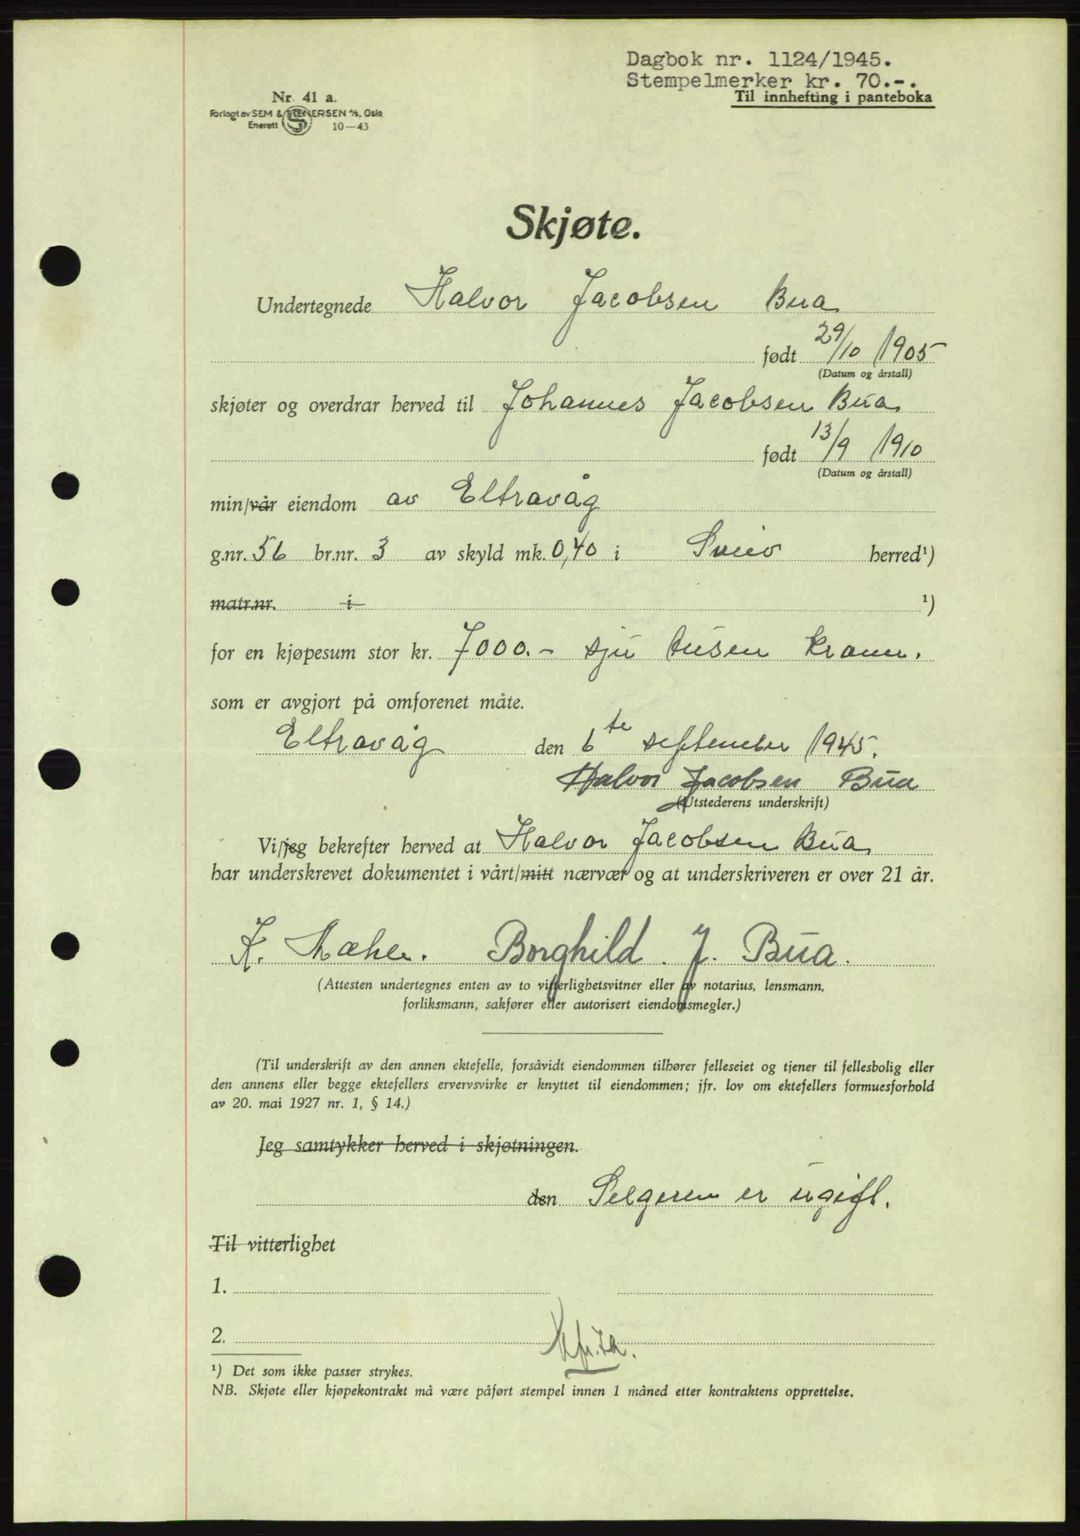 Dagbok nr. 1124/1945.
Stempelmerker kr. 70.-.
Til innhefting i panteboka
Nr. 41 a.
Forlagt av SEM & STENERSEN A/S, Oslo
Enerett S 10—43
Skjøte.
Undertegnede Halvor Jacobsen Bua
født 29/10 1905
(Datum og årstall)
skjøter og overdrar herved til Johannes Jacobsen Bua
født 13/9 1910
(Datum og årstall)
min/vår eiendom av Eltravåg
g.nr. 56 br.nr. 3 av skyld mk. 0,40 i Sveio herred¹)
matr.nr. i ¹)
for en kjøpesum stor kr. 7000.- sju tusen kroner.
som er avgjort på omforenet måte.
Eltravåg den 6te september 1945.
Halvor Jacobsen Bua
(Utstederens underskrift)
Vi/jeg bekrefter herved at Halvor Jacobsen Bua
har underskrevet dokumentet i vårt/mitt nærvær og at underskriveren er over 21 år.
K. Mæhle. Borghild J. Bua.
(Attesten undertegnes enten av to vitterlighetsvitner eller av notarius, lensmann,
forliksmann, sakfører eller autorisert eiendomsmegler.)
(Til underskrift av den annen ektefelle, forsåvidt eiendommen tilhører felleseiet og tjener til fellesbolig eller
den annens eller begge ektefellers ervervsvirke er knyttet til eiendommen; jfr. lov om ektefellers formuesforhold
av 20. mai 1927 nr. 1, § 14.)
Jeg samtykker herved i skjøtningen.
den Selgeren er ugift.
Til vitterlighet
1.
2.
¹) Det som ikke passer strykes.
NB. Skjøte eller kjøpekontrakt må være påført stempel innen 1 måned etter kontraktens opprettelse.